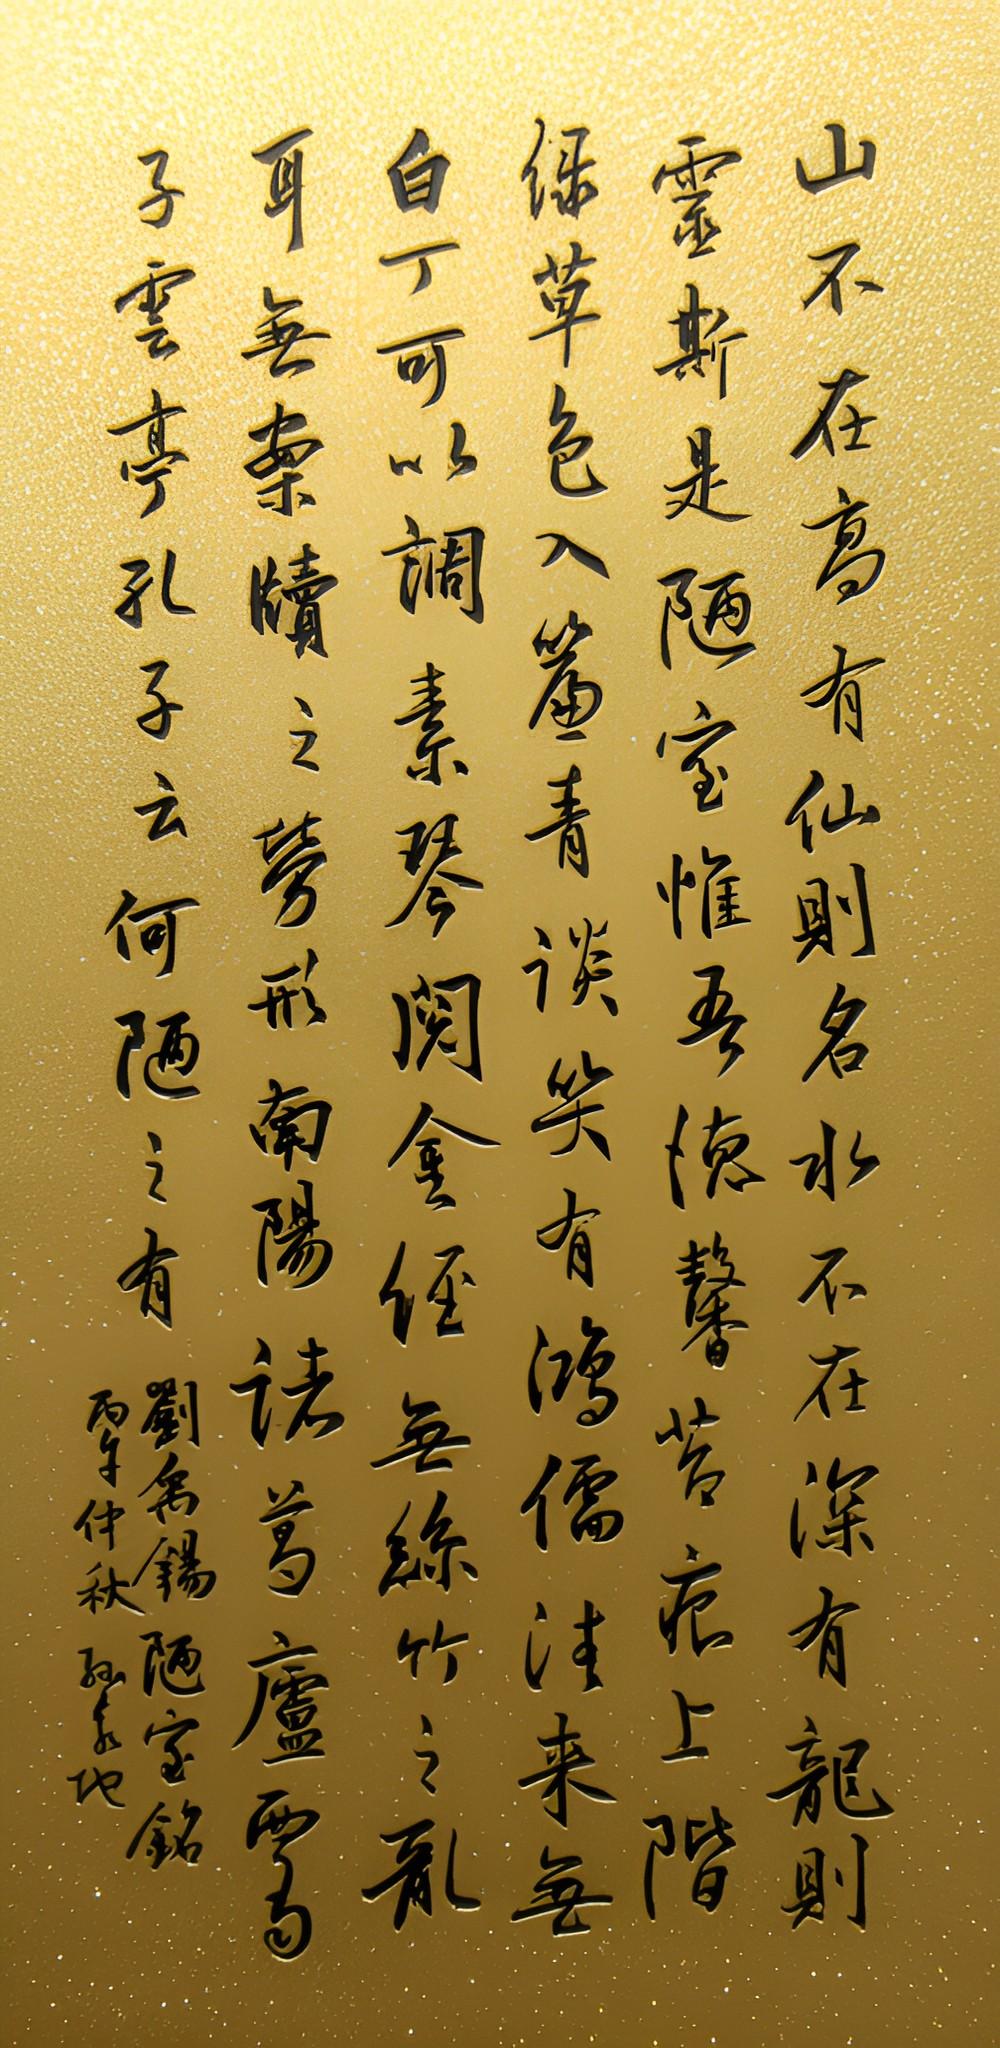 山不在高有仙則名水不在深有龍則
靈斯是陋室惟吾德馨苔痕上階
绿草色入簾青談笑有鴻儒往来無
白丁可以調素琴閱金經無絲竹之亂
耳無案牘之勞形南陽諸葛廬西蜀
子雲亭孔子云何陋之有
劉禹錫陋室銘
丙午仲秋